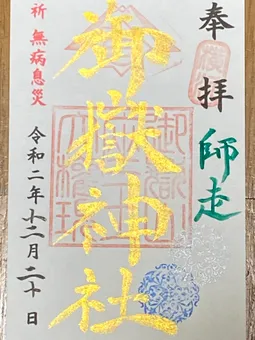 奉拝 師走
御嶽神社
祈 無病息災
令和二年十二月二十日